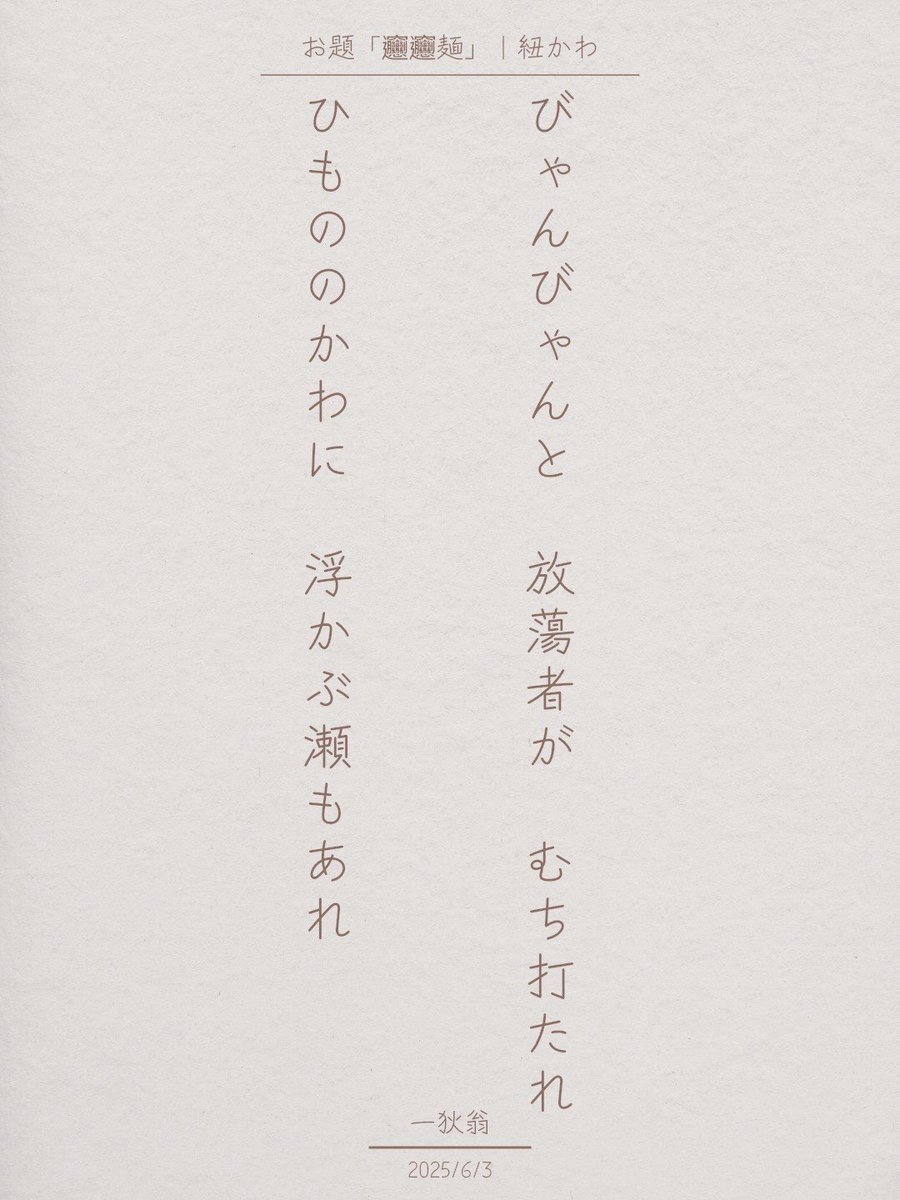 お題「𰻞𰻞麺」｜紐かわ
びゃんびゃんと　放蕩者が　むち打たれ
ひもののかわに　浮かぶ瀬もあれ
一狄翁
2025/6/3